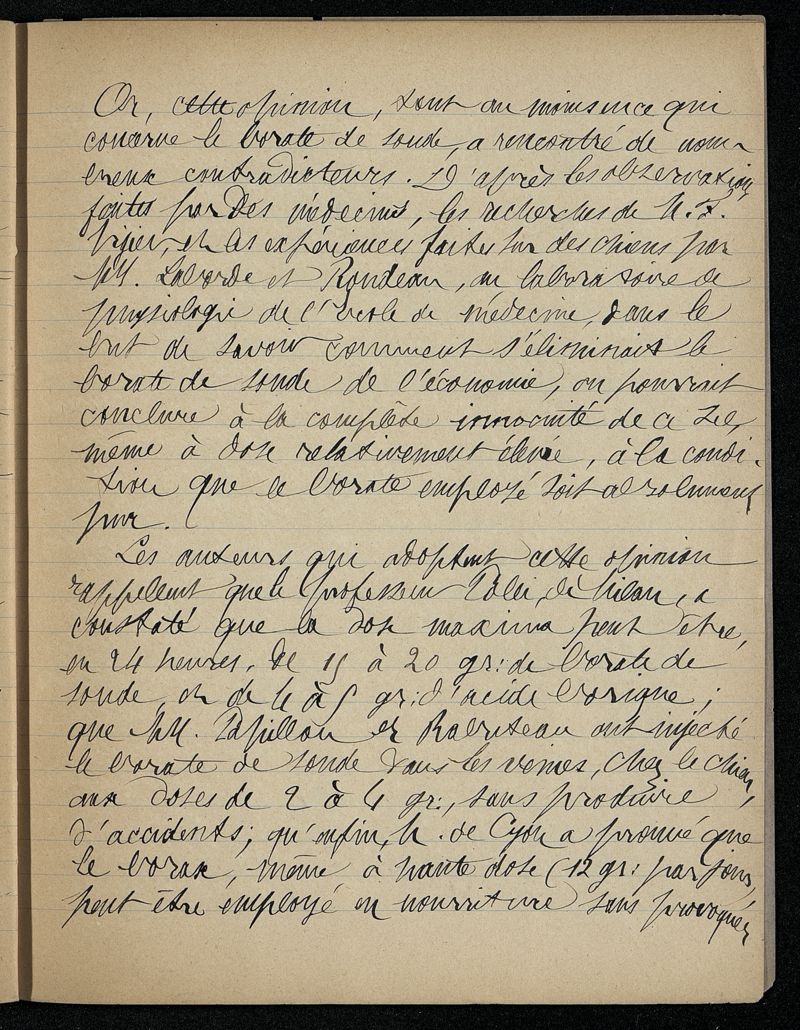 Or, cette opinion, tout au moins en ce qui
concerne le borate de soude, a rencontré de nom-
breux contradicteurs. D'après les observations
faites par des médecins, les recherches de M. F.
Vigier, et les expériences faites sur des chiens par
MM. Laborde et Rondeau, au laboratoire de
physiologie de l'école de médecine, dans le
but de savoir comment s'éliminait le
borate de soude de l'économie, on pourrait
conclure à la complète innocuité de ce sel,
même à dose relativement élevée, à la condi-
tion que le borate employé soit absolument
pur.
Les auteurs qui adoptent cette opinion
rappellent que le professeur Polli, de Milan, a
constaté que la dose maxima peut être,
en 24 heures, de 15 à 20 gr: de borate de
soude, et de 4 à 5 gr: d'acide borique;
que MM. Papillon et Rabuteau ont injecté
le borate de soude dans les veines, chez le chien,
aux doses de 2 à 4 gr:, sans produire
d'accidents; qu'enfin, M. de Cyon a prouvé que
le borax, même à haute dose (12 gr: par jour,
peut être employé en nourriture sans provoquer